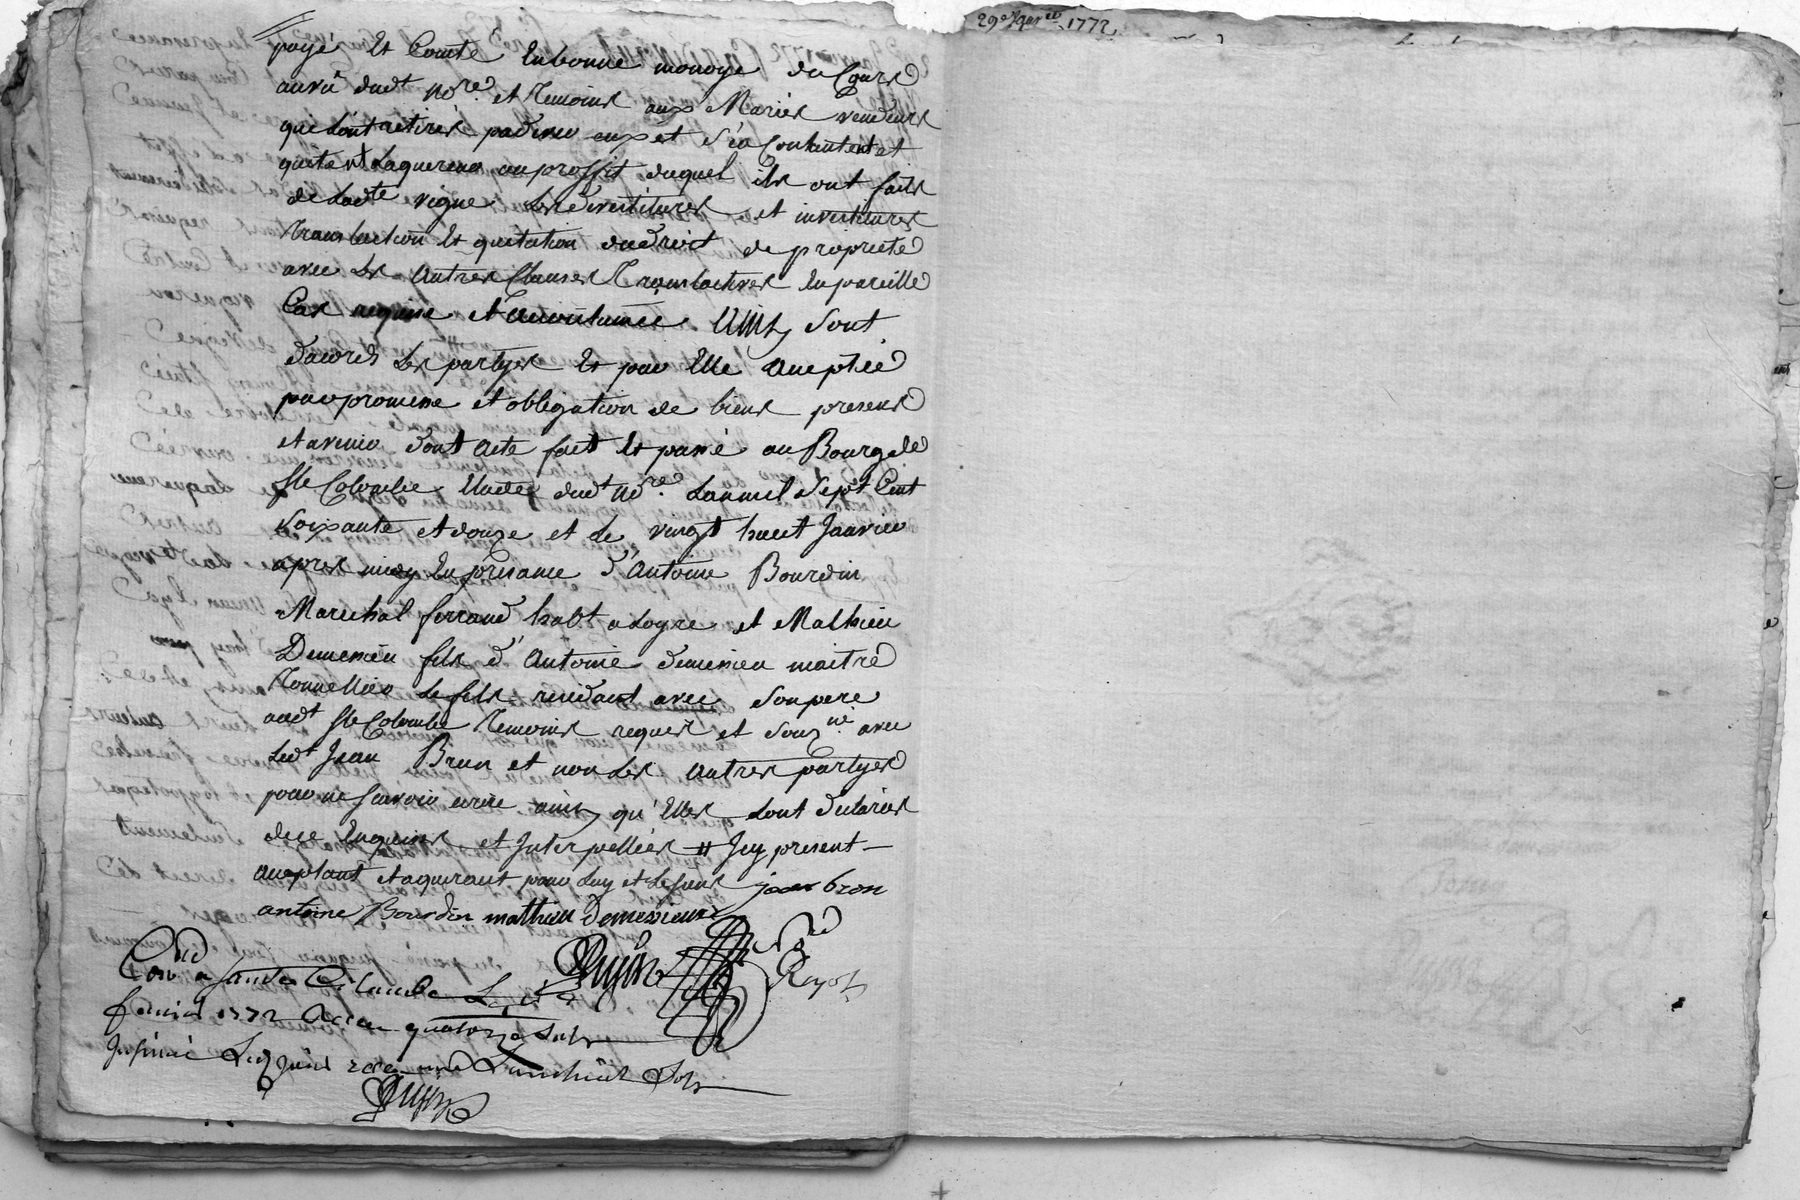 payé Et Comté Enbonne monoye du Cours
auvû dud.t No.re et Temoins aux Mariés vendeurs
que dont retirés pardever eux et s'en Contentent et
quitent Laquereur auproffit duquel ils ont faits
de Lad.te vigne Les Devestitures et investitures
Translation Et quitation dudroit de proprieté
avec Les Autres Clauses Translatives En pareille
Cas requise et accoutumée. Ainsy sont
d'accords Les partyes Et par Elle acceptée
par promesse et obligation de biens presens
et avenir dont Acte fait Et passé au Bourg de
Ste Colombe Etude dud.t No.re. Lan mil Sept Cent
soixante et douze et Le vingt huit Janvier
apres midy En presance d'Antoine Bourdin
Marechal ferrand hab.t a Loyre et Mathieu
Demesieu fils d'Antoine Demesieu maitre
Tonnellier Le fils residant avec son pere
aud.t Ste Colombe Temoins requis et Souz.né avec
Led.t Jean Brun et non Les Autres partyes
pour ne scavoir ecrire ainsy qu'Elles sont declarées
de ce Enquises et Interpellées # Icy present
acceptant et aquerant pour Luy et Les siens jean bron
antoine Bourdin mathieu Demessieux
No.re Royal
Con.lé a Sainte Colombe Le
fevrier 1772 Recu quatorze sols
Insinué Led. jour recu
sols
29e Janv.er 1772